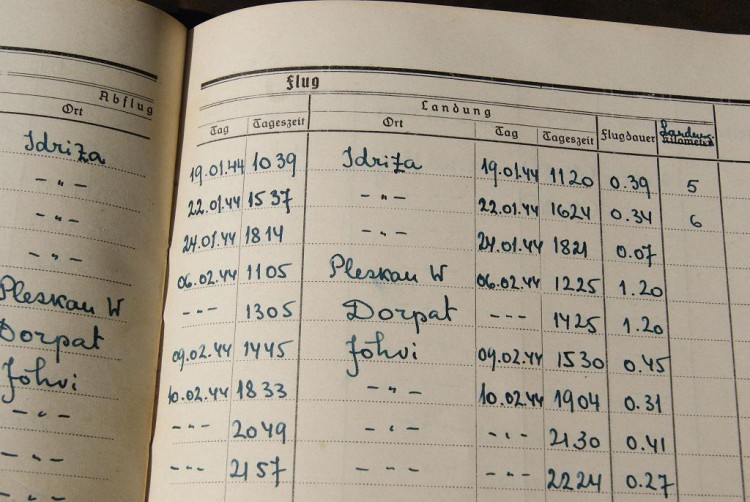 Flug
Abflug Landung
Ort Tag Tageszeit Ort Tag Tageszeit Flugdauer
Idriza 19.01.44 1039 Idriza 19.01.44 1120 0.39 5
- " - 22.01.44 1537 - " - 22.01.44 1624 0.34 6
- " - 24.01.44 1814 - " - 24.01.44 1821 0.07
- " - 06.02.44 1105 Pleskau W 06.02.44 1225 1.20
Pleskau W - - - 1305 Dorpat - - - 1425 1.20
Dorpat 09.02.44 1445 Jöhvi 09.02.44 1530 0.45
Jöhvi 10.02.44 1833 - " - 10.02.44 1904 0.31
- " - - - - 2049 - " - - " - 2130 0.41
- " - - - - 2157 - " - - - - 2224 0.27
- " -